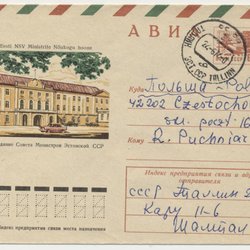 Eesti NSV Ministrite Nõukogu hoone
АВИА
TALLINN
Куда Польша - Pol
42202 Częstocho
Кому R. Puchniar
здание Совета Министров Эстонской ССР
Индекс предприятия связи и адрес
отправителя
СССР Таллин
Кару 11-6
Индекс предприятия связи места назначения